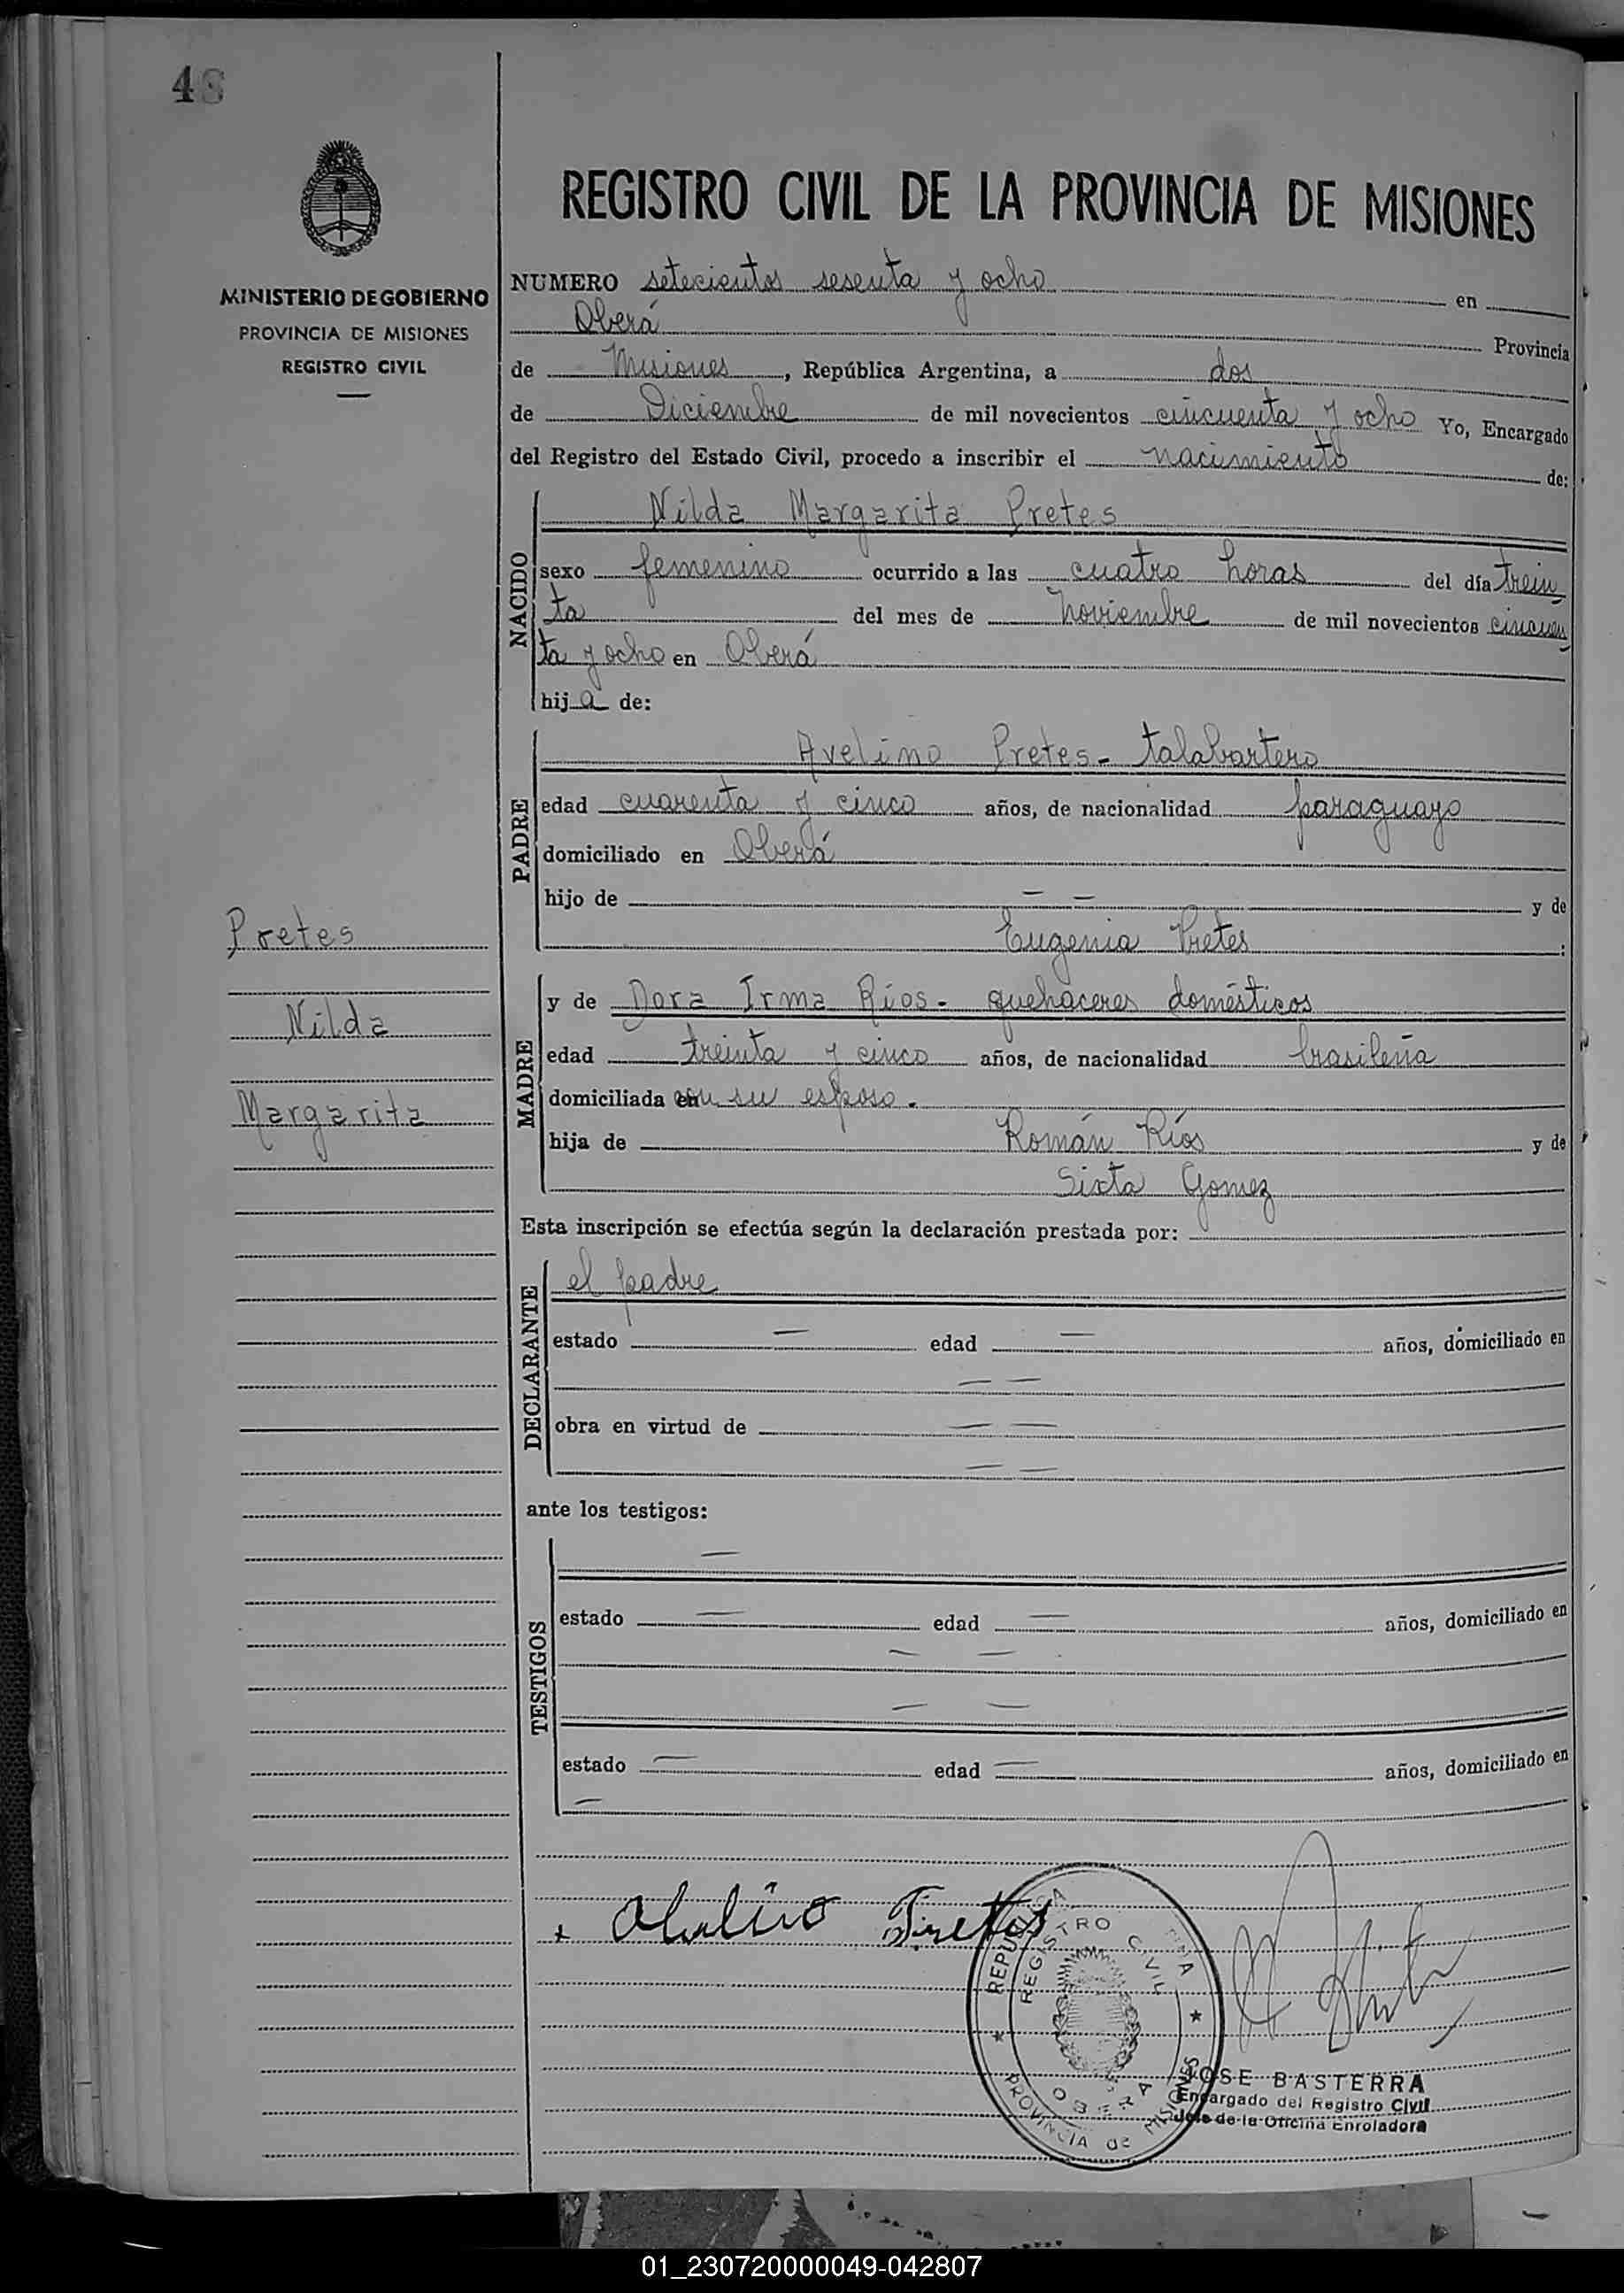 48
MINISTERIO DE GOBIERNO
PROVINCIA DE MISIONES
REGISTRO CIVIL
REGISTRO CIVIL DE LA PROVINCIA DE MISIONES
NUMERO setecientos sesenta y ocho en
Oberá Provincia
de Misiones, República Argentina, a dos
de Diciembre de mil novecientos cincuenta y ocho Yo, Encargado
del Registro del Estado Civil, procedo a inscribir el nacimiento de:
NACIDO
Nilda Margarita Pretes
sexo femenino ocurrido a las cuatro horas del día trein
ta del mes de Noviembre de mil novecientos cincuen
ta y ocho en Oberá
hija de:
PADRE
Avelino Pretes - talabartero
edad cuarenta y cinco años, de nacionalidad paraguayo
domiciliado en Oberá
hijo de — — y de
Eugenia Pretes :
MADRE
y de Dora Irma Ríos - quehaceres domésticos
edad treinta y cinco años, de nacionalidad brasileña
domiciliada con su esposo.
hija de Román Ríos y de
Sixta Gomez
Esta inscripción se efectúa según la declaración prestada por:
DECLARANTE
el padre
estado — edad — años, domiciliado en
— —
obra en virtud de — —
— —
ante los testigos:
TESTIGOS
—
estado — edad — años, domiciliado en
— —
— —
estado — edad — años, domiciliado en
—
Pretes
Nilda
Margarita
Pretes
REGISTRO CIVIL
OBERA
PROVINCIA de MISIONES
JOSE BASTERRA
Encargado del Registro Civil
Jefe de la Oficina Enroladora
01_230720000049-042807